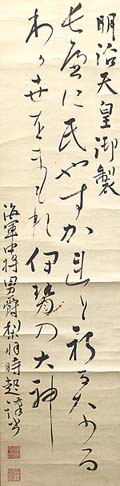 明治天皇御製
長へに民やすかれと祈るなる
わが世をまもれ伊勢の大神
海軍中将男爵梨羽時起謹書